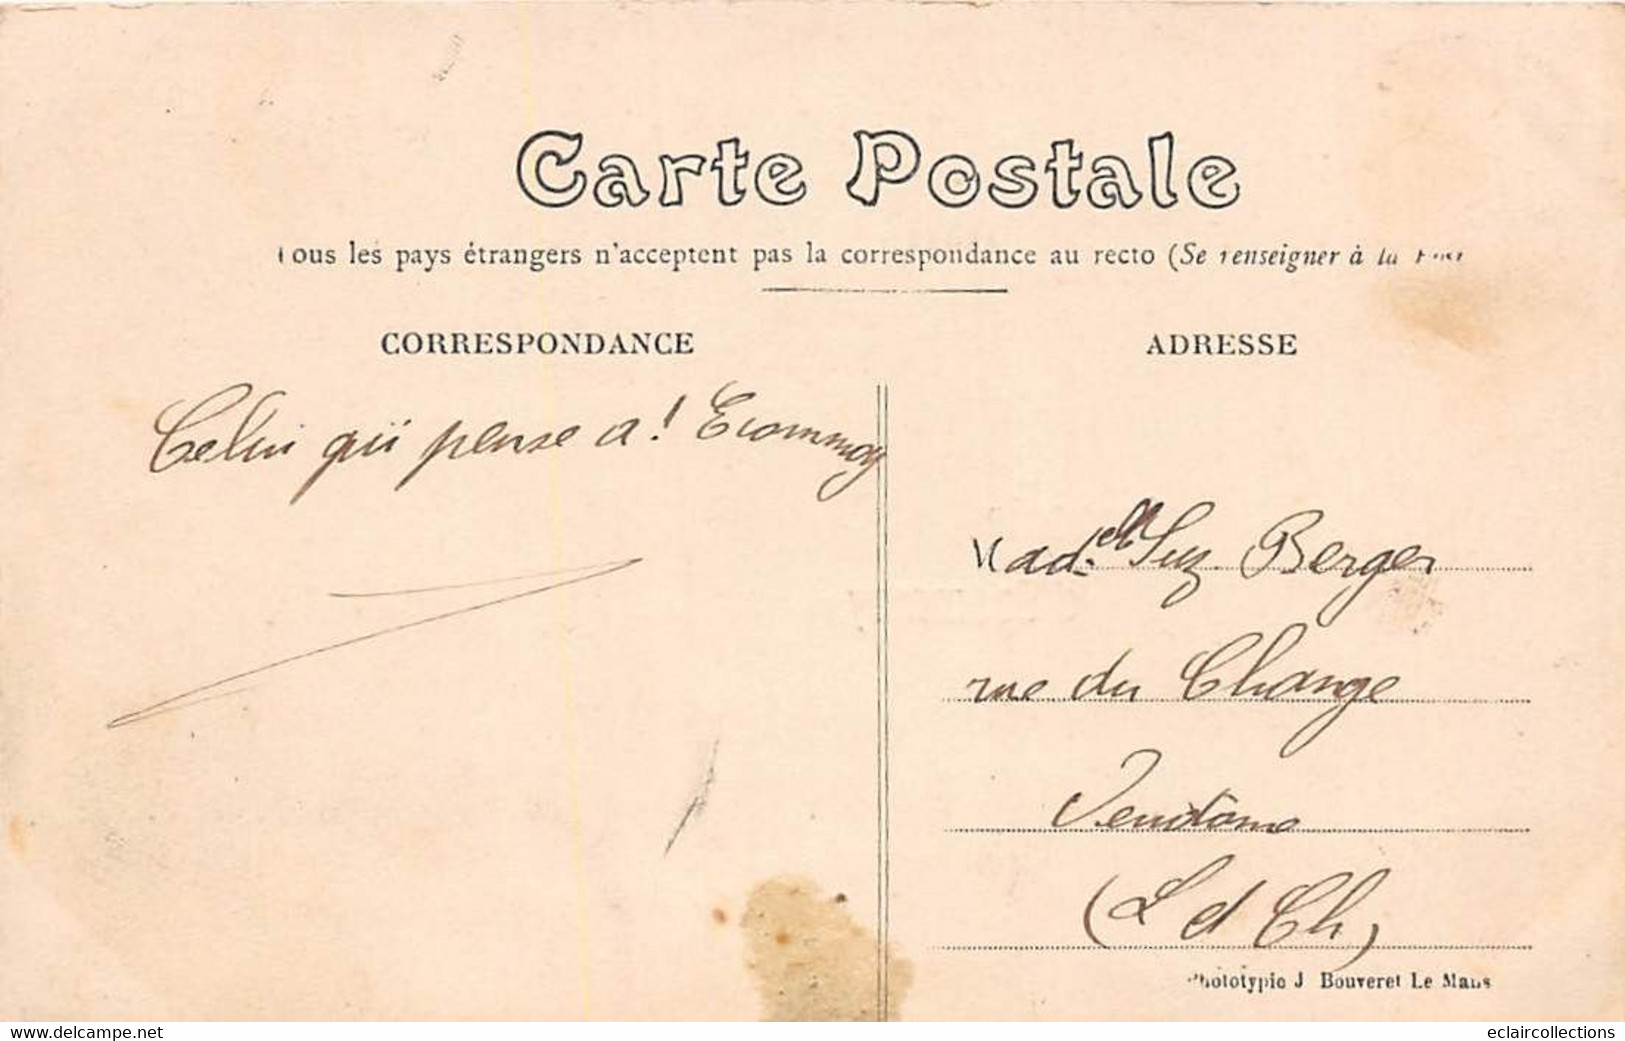 Carte Postale
Tous les pays étrangers n'acceptent pas la correspondance au recto (Se renseigner à la
CORRESPONDANCE
Celui qui pense a! Ecommoy
ADRESSE
Madelle Suz. Berger
rue du Change
Vendôme
(L et Ch)
Phototypie J Bouveret Le Mans
www.delcampe.net
eclaircollections